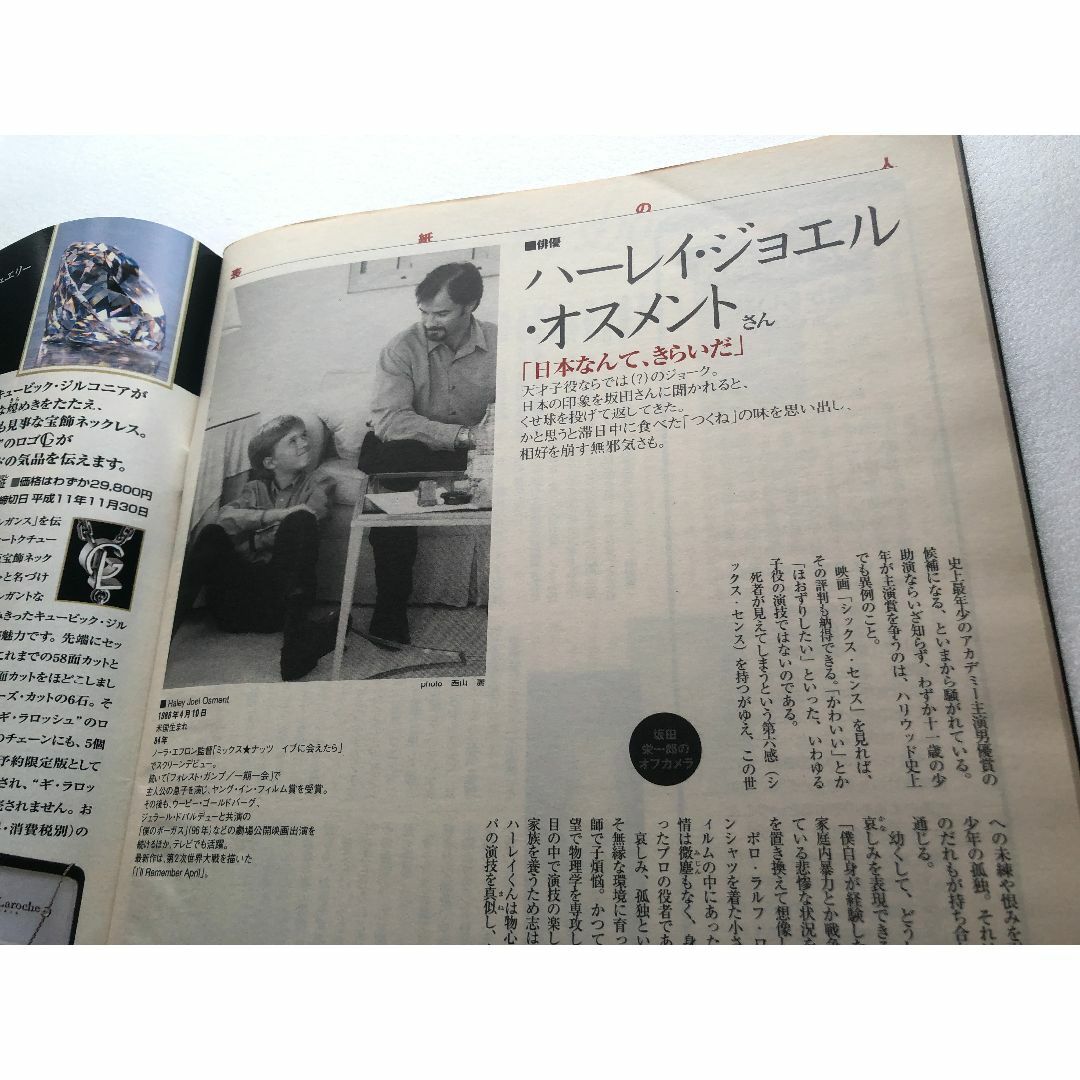 表紙の人
■俳優
ハーレイ・ジョエル
・オスメントさん
「日本なんて、きらいだ」
天才子役ならでは(?)のジョーク。
日本の印象を坂田さんに聞かれると、
くせ球を投げて返してきた。
かと思うと滞日中に食べた「つくね」の味を思い出し、
相好を崩す無邪気さも。
史上最年少のアカデミー主演男優賞の
候補になる、といまから騒がれている。
助演ならいざ知らず、わずか十一歳の少
年が主演賞を争うのは、ハリウッド史上
でも異例のこと。
映画「シックス・センス」を見れば、
その評判も納得できる。「かわいい」とか
「ほおずりしたい」といった、いわゆる
子役の演技ではないのである。
死者が見えてしまうという第六感(シ
ックス・センス)を持つがゆえ、この世
坂田
栄一郎の
オフカメラ
への未練や恨みを
少年の孤独。それに
のだれもが持ち合
通じる。
幼くして、どう
哀しみを表現できる
「僕自身が経験した
家庭内暴力とか戦争
ている悲惨な状況を
を置き換えて想像し
ポロ・ラルフ・ロ
ンシャツを着た小さ
ィルムの中にあった
情は微塵もなく、身
ったプロの役者であ
哀しみ、孤独とい
そ無縁な環境に育っ
師で子煩悩。かつて
望で物理学を専攻し
目の中で演技の楽し
家族を養うため志は
ハーレイくんは物心
パの演技を真似し、
photo 西山 薫
■Haley Joel Osment
1988年4月10日
米国生まれ
94年
ノーラ・エフロン監督「ミックス★ナッツ イブに会えたら」
でスクリーンデビュー。
続いて「フォレスト・ガンプ/一期一会」で
主人公の息子を演じ、ヤング・イン・フィルム賞を受賞。
その後も、ウーピー・ゴールドバーグ、
ジェラール・ドパルデューと共演の
「僕のボーガス」('96年)などの劇場公開映画出演を
続けるほか、テレビでも活躍。
最新作は、第2次世界大戦を描いた
「I'll Remember April」。
ェエリー
キュービック・ジルコニアが
な煌めきをたたえ、
も見事な宝飾ネックレス。
"のロゴGが
の気品を伝えます。
■価格はわずか29,800円
締切日 平成11年11月30日
レガンス」を伝
ートクチュー
宝飾ネック
と名づけ
レガントな
きったキュービック・ジル
魅力です。先端にセッ
これまでの58面カットと
面カットをほどこしまし
ーズ・カットの6石。そ
"ギ・ラロッシュ"のロ
のチェーンにも、5個
予約限定版として
され、"ギ・ラロッ
売されません。お
・消費税別)の
Laroche